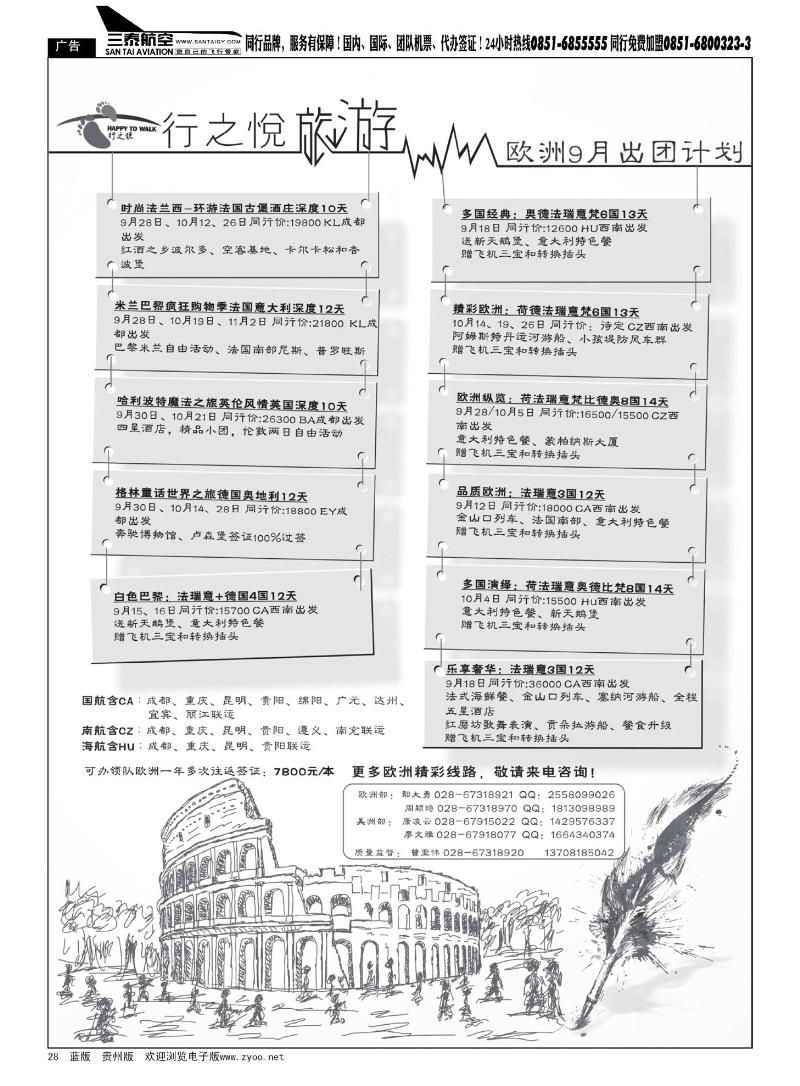 广告
三泰航空
WWW.SANTAISY.COM
SAN TAI AVIATION
您自己的飞行管家
同行品牌，服务有保障！国内、国际、团队机票、代办签证！24小时热线0851-6855555 同行免费加盟0851-6800323-3
HAPPY TO WALK
行之悦
行之悦旅游
欧洲9月出团计划
时尚法兰西-环游法国古堡酒庄深度10天
9月28日、10月12、26日同行价:19800 KL成都
出发
红酒之乡波尔多、空客基地、卡尔卡松和香
波堡
米兰巴黎疯狂购物季法国意大利深度12天
9月28日、10月19日、11月2日同行价:21800 KL成
都出发
巴黎米兰自由活动、法国南部尼斯、普罗旺斯
哈利波特魔法之旅英伦风情英国深度10天
9月30日、10月21日 同行价:26300 BA成都出发
四星酒店，精品小团，伦敦两日自由活动
格林童话世界之旅德国奥地利12天
9月30日、10月14、28日 同行价:18800 EY成
都出发
奔驰博物馆、卢森堡签证100%过签
白色巴黎：法瑞意+德国4国12天
9月15、16日同行价:15700 CA西南出发
送新天鹅堡、意大利特色餐
赠飞机三宝和转换插头
多国经典：奥德法瑞意梵6国13天
9月18日 同行价:12600 HU西南出发
送新天鹅堡、意大利特色餐
赠飞机三宝和转换插头
精彩欧洲：荷德法瑞意梵6国13天
10月14、19、26日 同行价：待定 CZ西南出发
阿姆斯特丹运河游船、小孩堤防风车群
赠飞机三宝和转换插头
欧洲纵览：荷法瑞意梵比德奥8国14天
9月28/10月5日 同行价:16500/15500 CZ西
南出发
意大利特色餐、蒙帕纳斯大厦
赠飞机三宝和转换插头
品质欧洲：法瑞意3国12天
9月12日 同行价:18000 CA西南出发
金山口列车、法国南部、意大利特色餐
赠飞机三宝和转换插头
多国演绎：荷法瑞意奥德比梵8国14天
10月4日 同行价:15500 Hu西南出发
意大利特色餐、新天鹅堡
赠飞机三宝和转换插头
乐享奢华：法瑞意3国12天
9月18日同行价:36000 CA西南出发
法式海鲜餐、金山口列车、塞纳河游船、全程
五星酒店
红磨坊歌舞表演、贡朵拉游船、餐食升级
赠飞机三宝和转换插头
国航含CA：成都、重庆、昆明、贵阳、绵阳、广元、达州、
宜宾、丽江联运
南航含CZ：成都、重庆、昆明、贵阳、遵义、南充联运
海航含HU：成都、重庆、昆明、贵阳联运
可办领队欧洲一年多次往返签证：7800元/本
更多欧洲精彩线路，敬请来电咨询！
欧洲部：鄢大勇 028-67318921 QQ：2558099026
周颖琦 028-67318970 QQ：1813098989
美洲部：康凌云 028-67915022 QQ：1429576337
廖文雅 028-67918077 QQ：1664340374
质量监督：曾亚伟 028-67318920 13708185042
28 蓝版 贵州版 欢迎浏览电子版www.zyoo.net